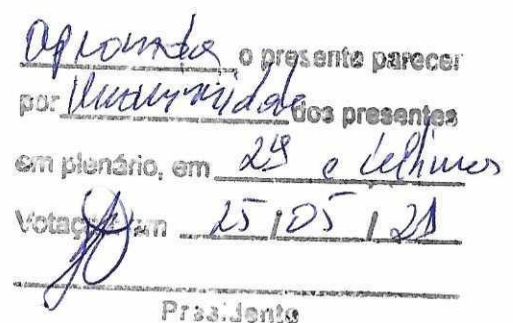 aprovada o presente parecer
por unanimidade dos presentes
em plenário, em 2ª e última
Votação em 25 / 05 / 21
Presidente